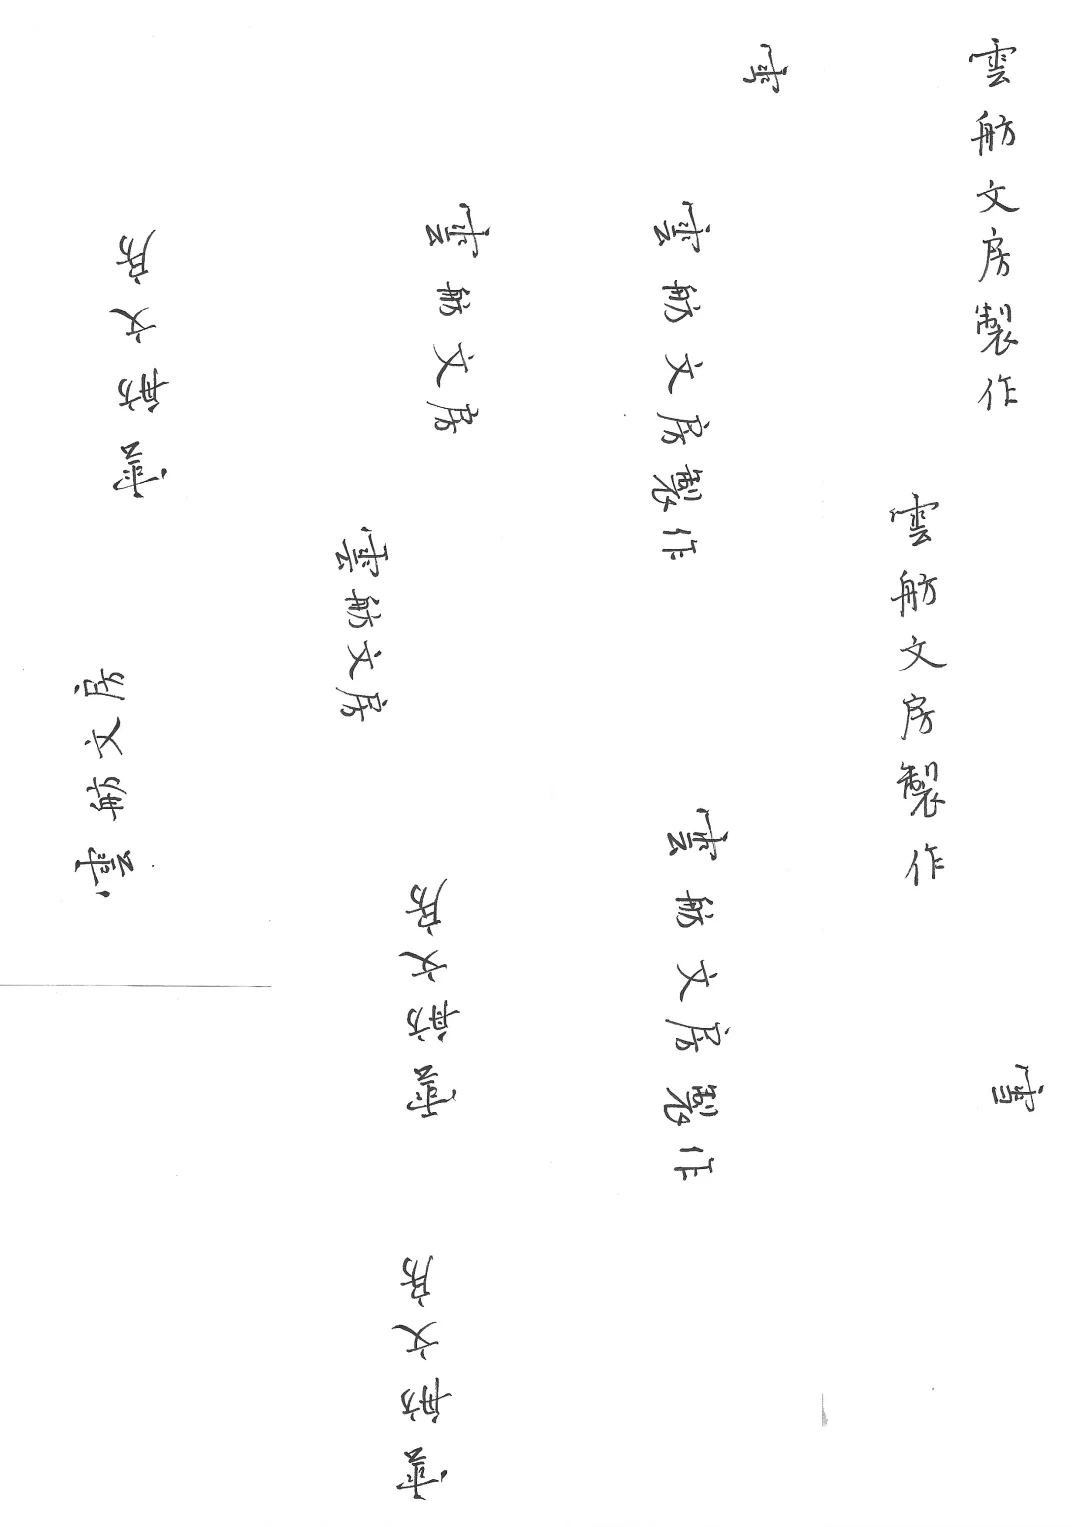 雲舫文房製作
雲舫文房製作
雲舫文房製作
雲舫文房製作
雲舫文房
雲舫文房
雲舫文房
雲舫文房
雲舫文房
雲舫文房